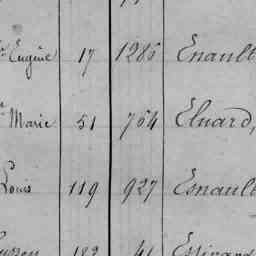 Eugène 17 1286 Enault
Marie 51 764 Eluard,
Louis 119 927 Esnault
182 41